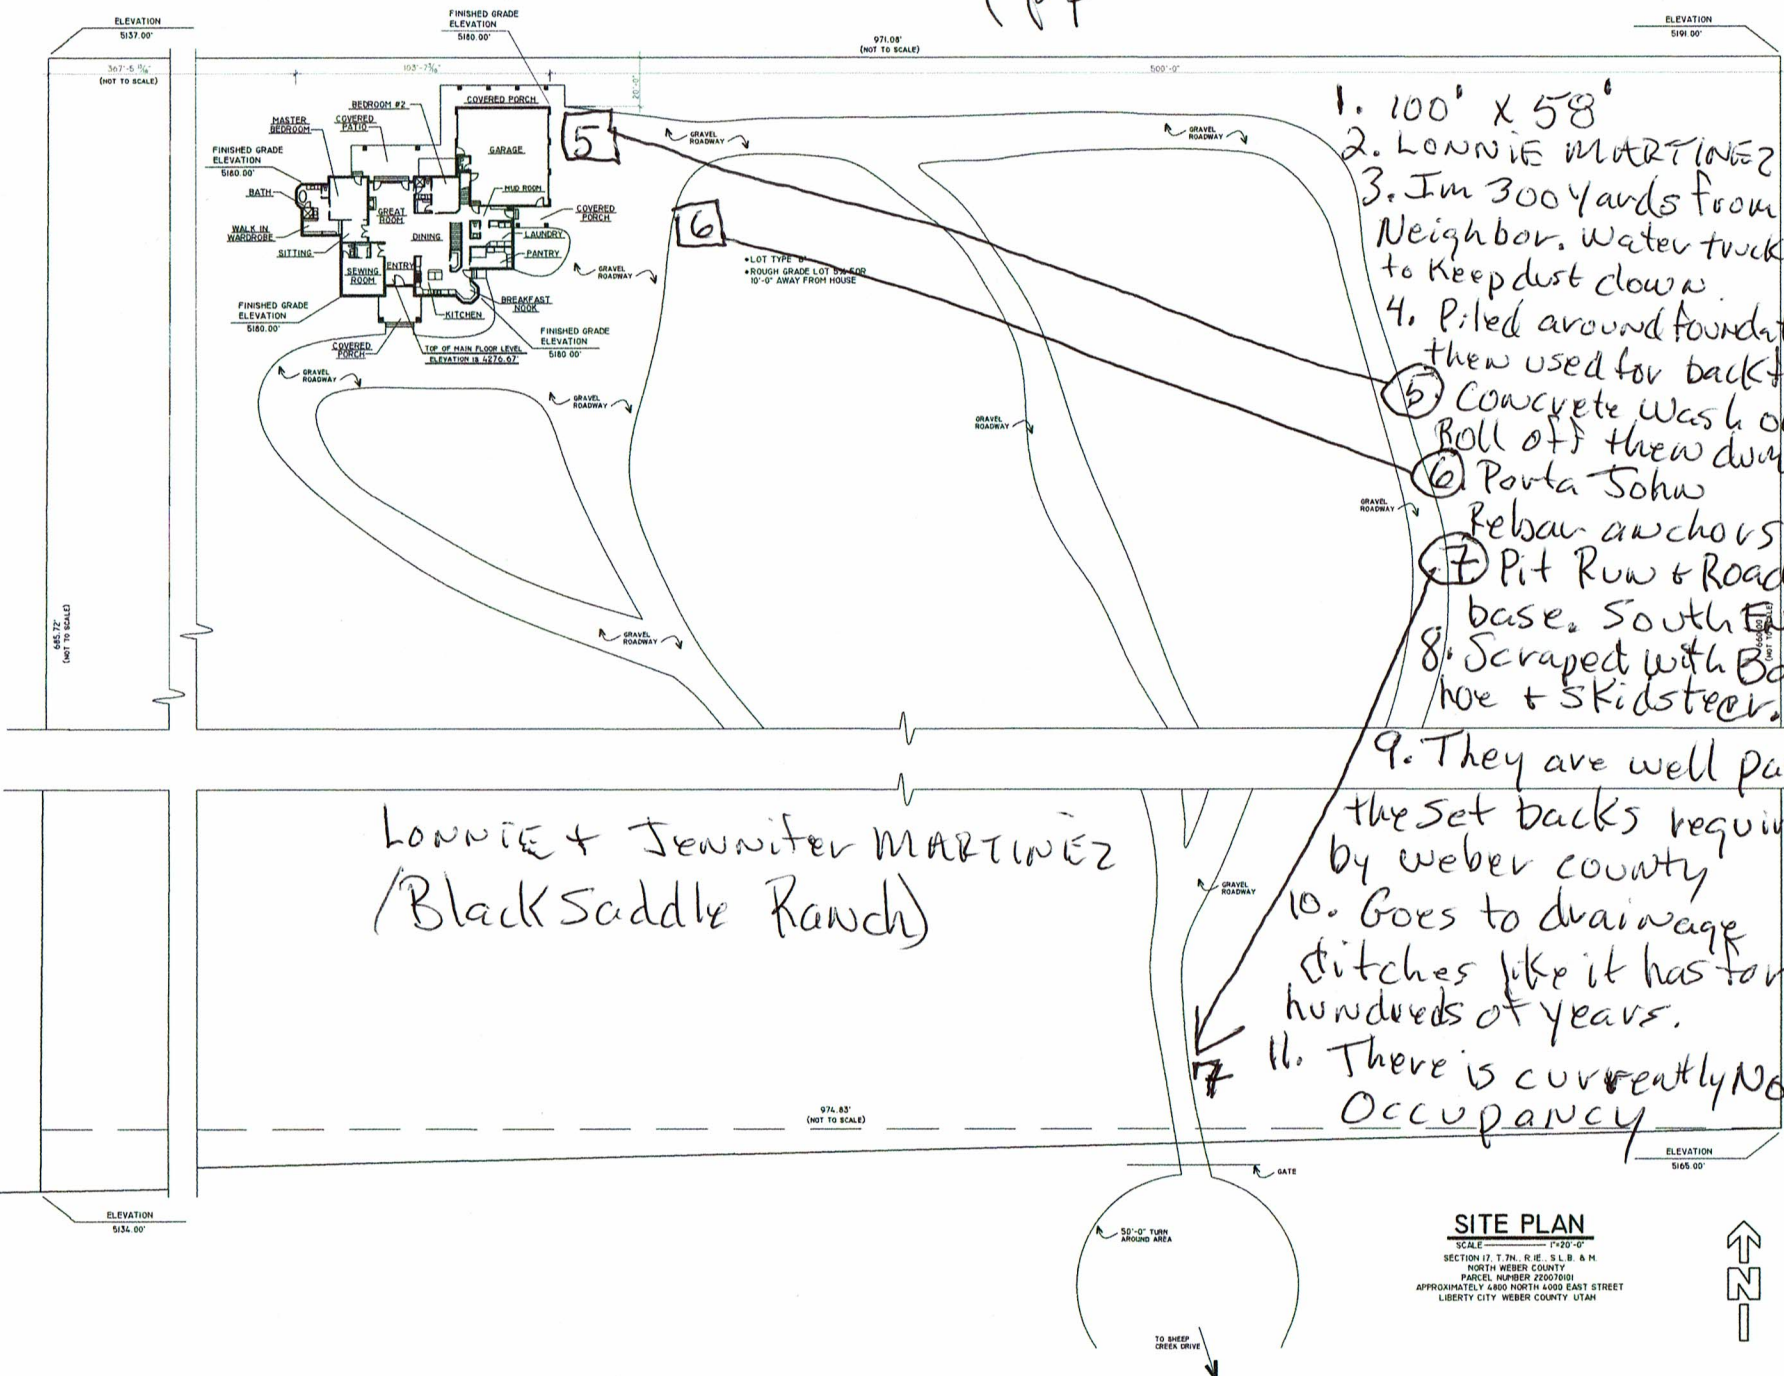 ELEVATION
5137.00'
FINISHED GRADE
ELEVATION
5180.00'
971.08'
(NOT TO SCALE)
ELEVATION
5191.00'
(NOT TO SCALE)
500'-0"
20'-0"
COVERED PORCH
BEDROOM #2
COVERED
PATIO
MASTER
BEDROOM
GARAGE
FINISHED GRADE
ELEVATION
5180.00'
BATH
GREAT
ROOM
MUD ROOM
COVERED
PORCH
WALK IN
WARDROBE
DINING
LAUNDRY
SITTING
PANTRY
SEWING
ROOM
ENTRY
BREAKFAST
NOOK
KITCHEN
FINISHED GRADE
ELEVATION
5180.00'
FINISHED GRADE
ELEVATION
5180.00'
COVERED
PORCH
TOP OF MAIN FLOOR LEVEL
ELEVATION IS 4276.67'
5
6
GRAVEL
ROADWAY
GRAVEL
ROADWAY
GRAVEL
ROADWAY
•LOT TYPE
•ROUGH GRADE LOT 5% FOR
10'-0" AWAY FROM HOUSE
GRAVEL
ROADWAY
GRAVEL
ROADWAY
GRAVEL
ROADWAY
GRAVEL
ROADWAY
GRAVEL
ROADWAY
685.72'
(NOT TO SCALE)
1. 100' X 58'
2. LONNIE MARTINEZ
3. Im 300 yards from
Neighbor. Water truck
to Keep dust down.
4. Piled around foundat
then used for backf
5. Concrete Wash o
Roll off then dum
6. Porta John
Rebar anchors
7 Pit Run & Road
base. South En
8. Scraped with Ba
hoe & Skidsteer.
9. They are well pa
the set backs requir
by weber county
10. Goes to drainage
ditches like it has for
hundreds of years.
11. There is currently No
Occupancy
LONNIE & Jennifer MARTINEZ
(Black Saddle Ranch)
GRAVEL
ROADWAY
7
974.83'
(NOT TO SCALE)
ELEVATION
5165.00'
GATE
ELEVATION
5134.00'
50'-0" TURN
AROUND AREA
TO SHEEP
CREEK DRIVE
SITE PLAN
SCALE 1"=20'-0"
SECTION 17, T.7N., R.1E., S.L.B. & M.
NORTH WEBER COUNTY
PARCEL NUMBER 220070101
APPROXIMATELY 4800 NORTH 4000 EAST STREET
LIBERTY CITY WEBER COUNTY UTAH
N